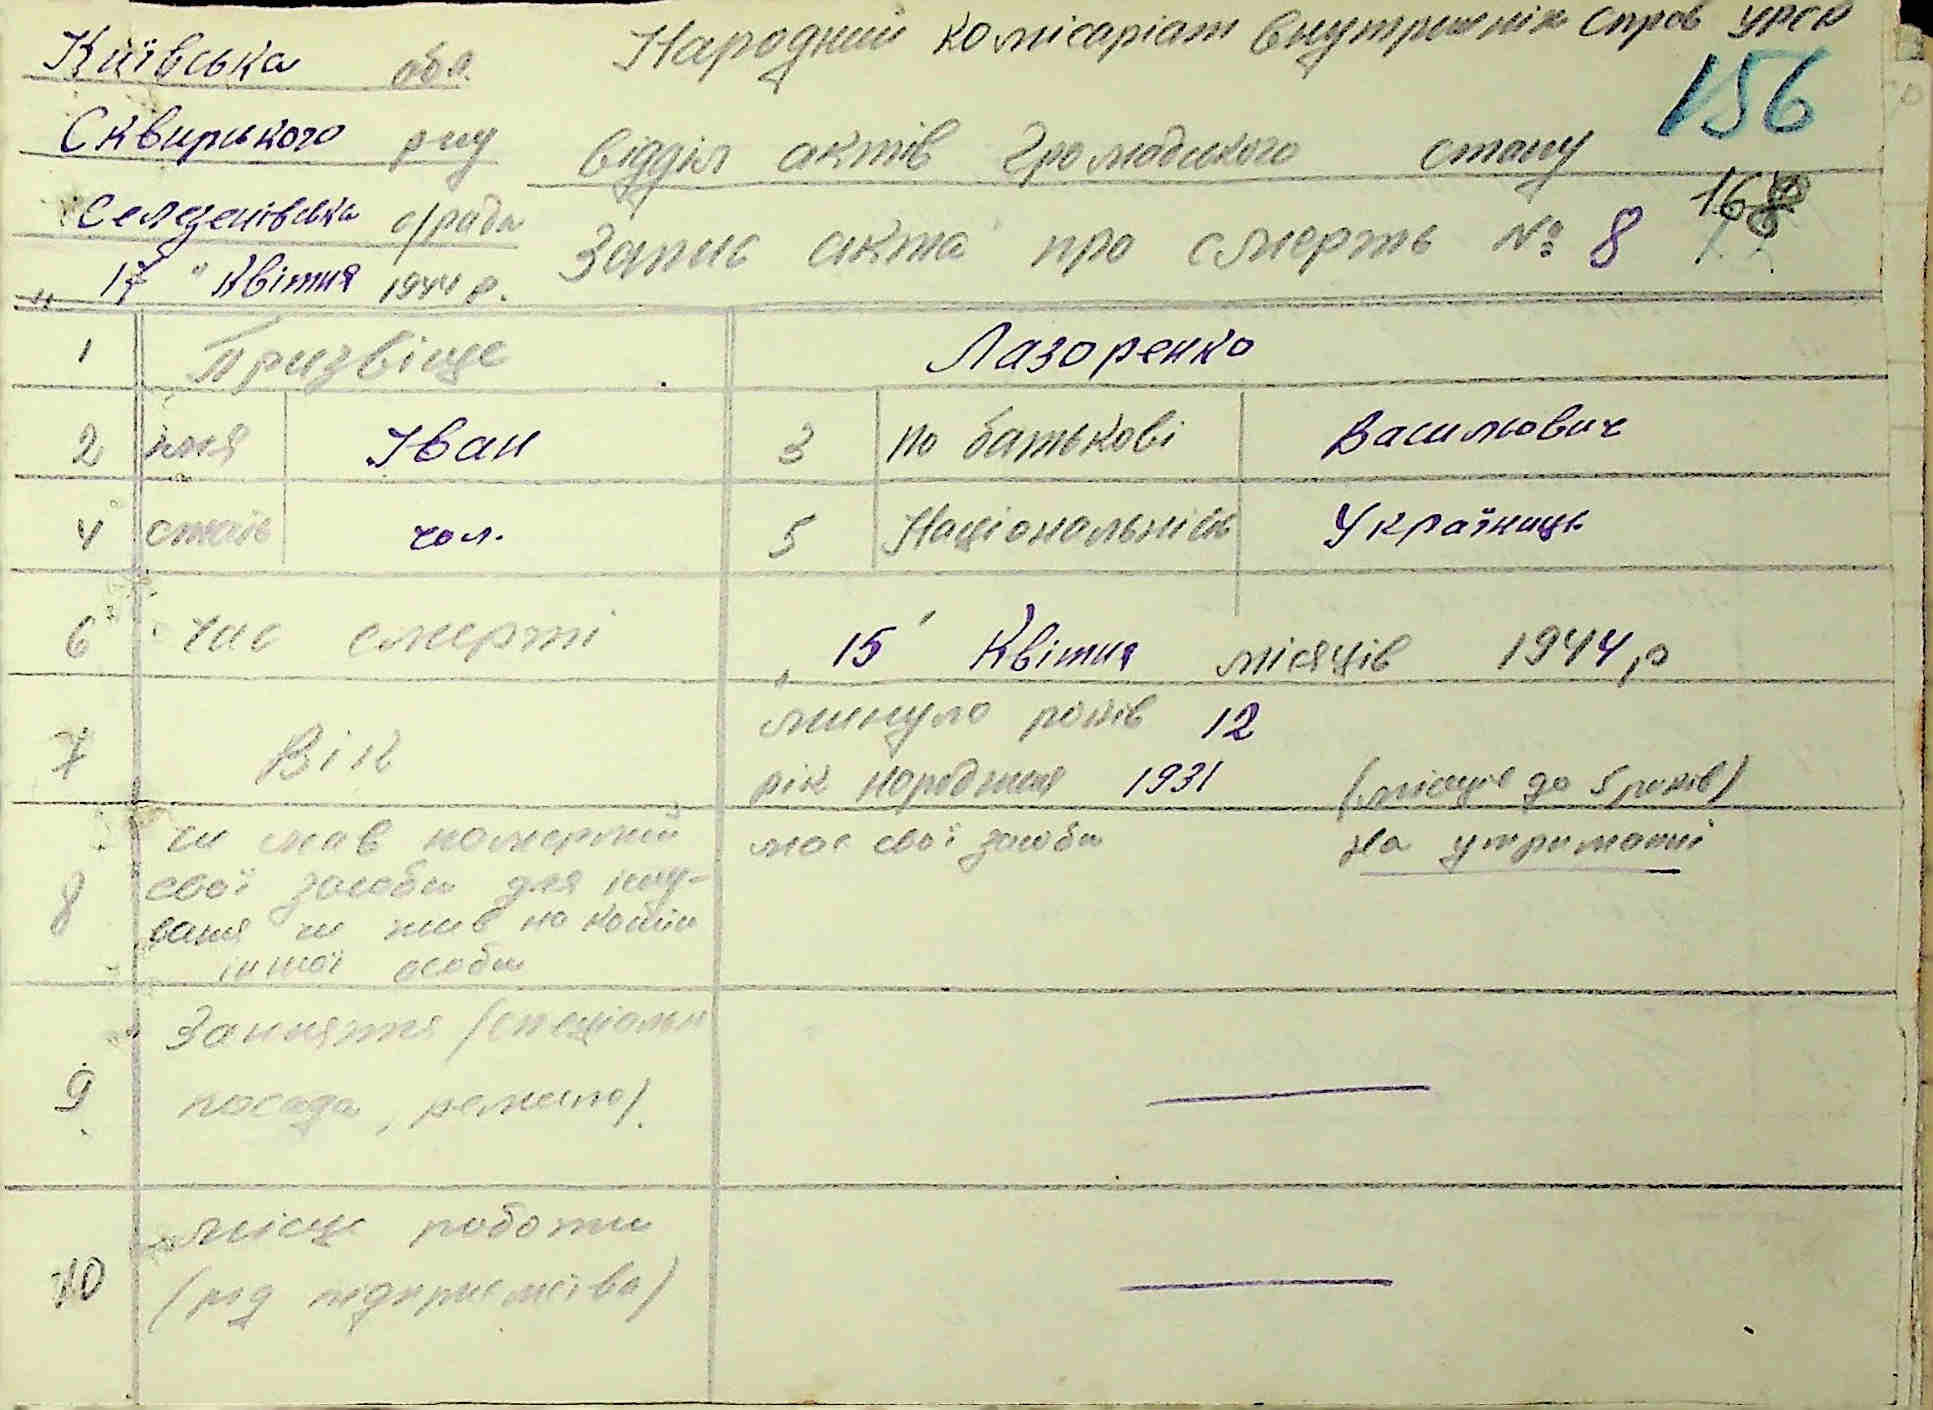 Київська обл. Народний комісаріат внутришніх справ УРСР
156
Сквирького р-ну відділ актів громадського стану
Селезенівська с/рада Запис акта про смерть № 8 168
„17" Квітня 1944 р.
1 Призвіще Лазоренко
2 імя Іван 3 по батькові Василювич
4 стать чол. 5 Національність Українець
6 час смерті „15" Квітня місяців 1944 р
7 Вік минуло років 12
рік народження 1931 (місяців до 5 років)
8 чи мав померлий має свої засоби на утриманні
свої засоби для існу-
вания чи жив на кошти
іншої особи
9 Заняття (спеціальн
посада, ремесло).
10 місце роботи
(рід підприємства)